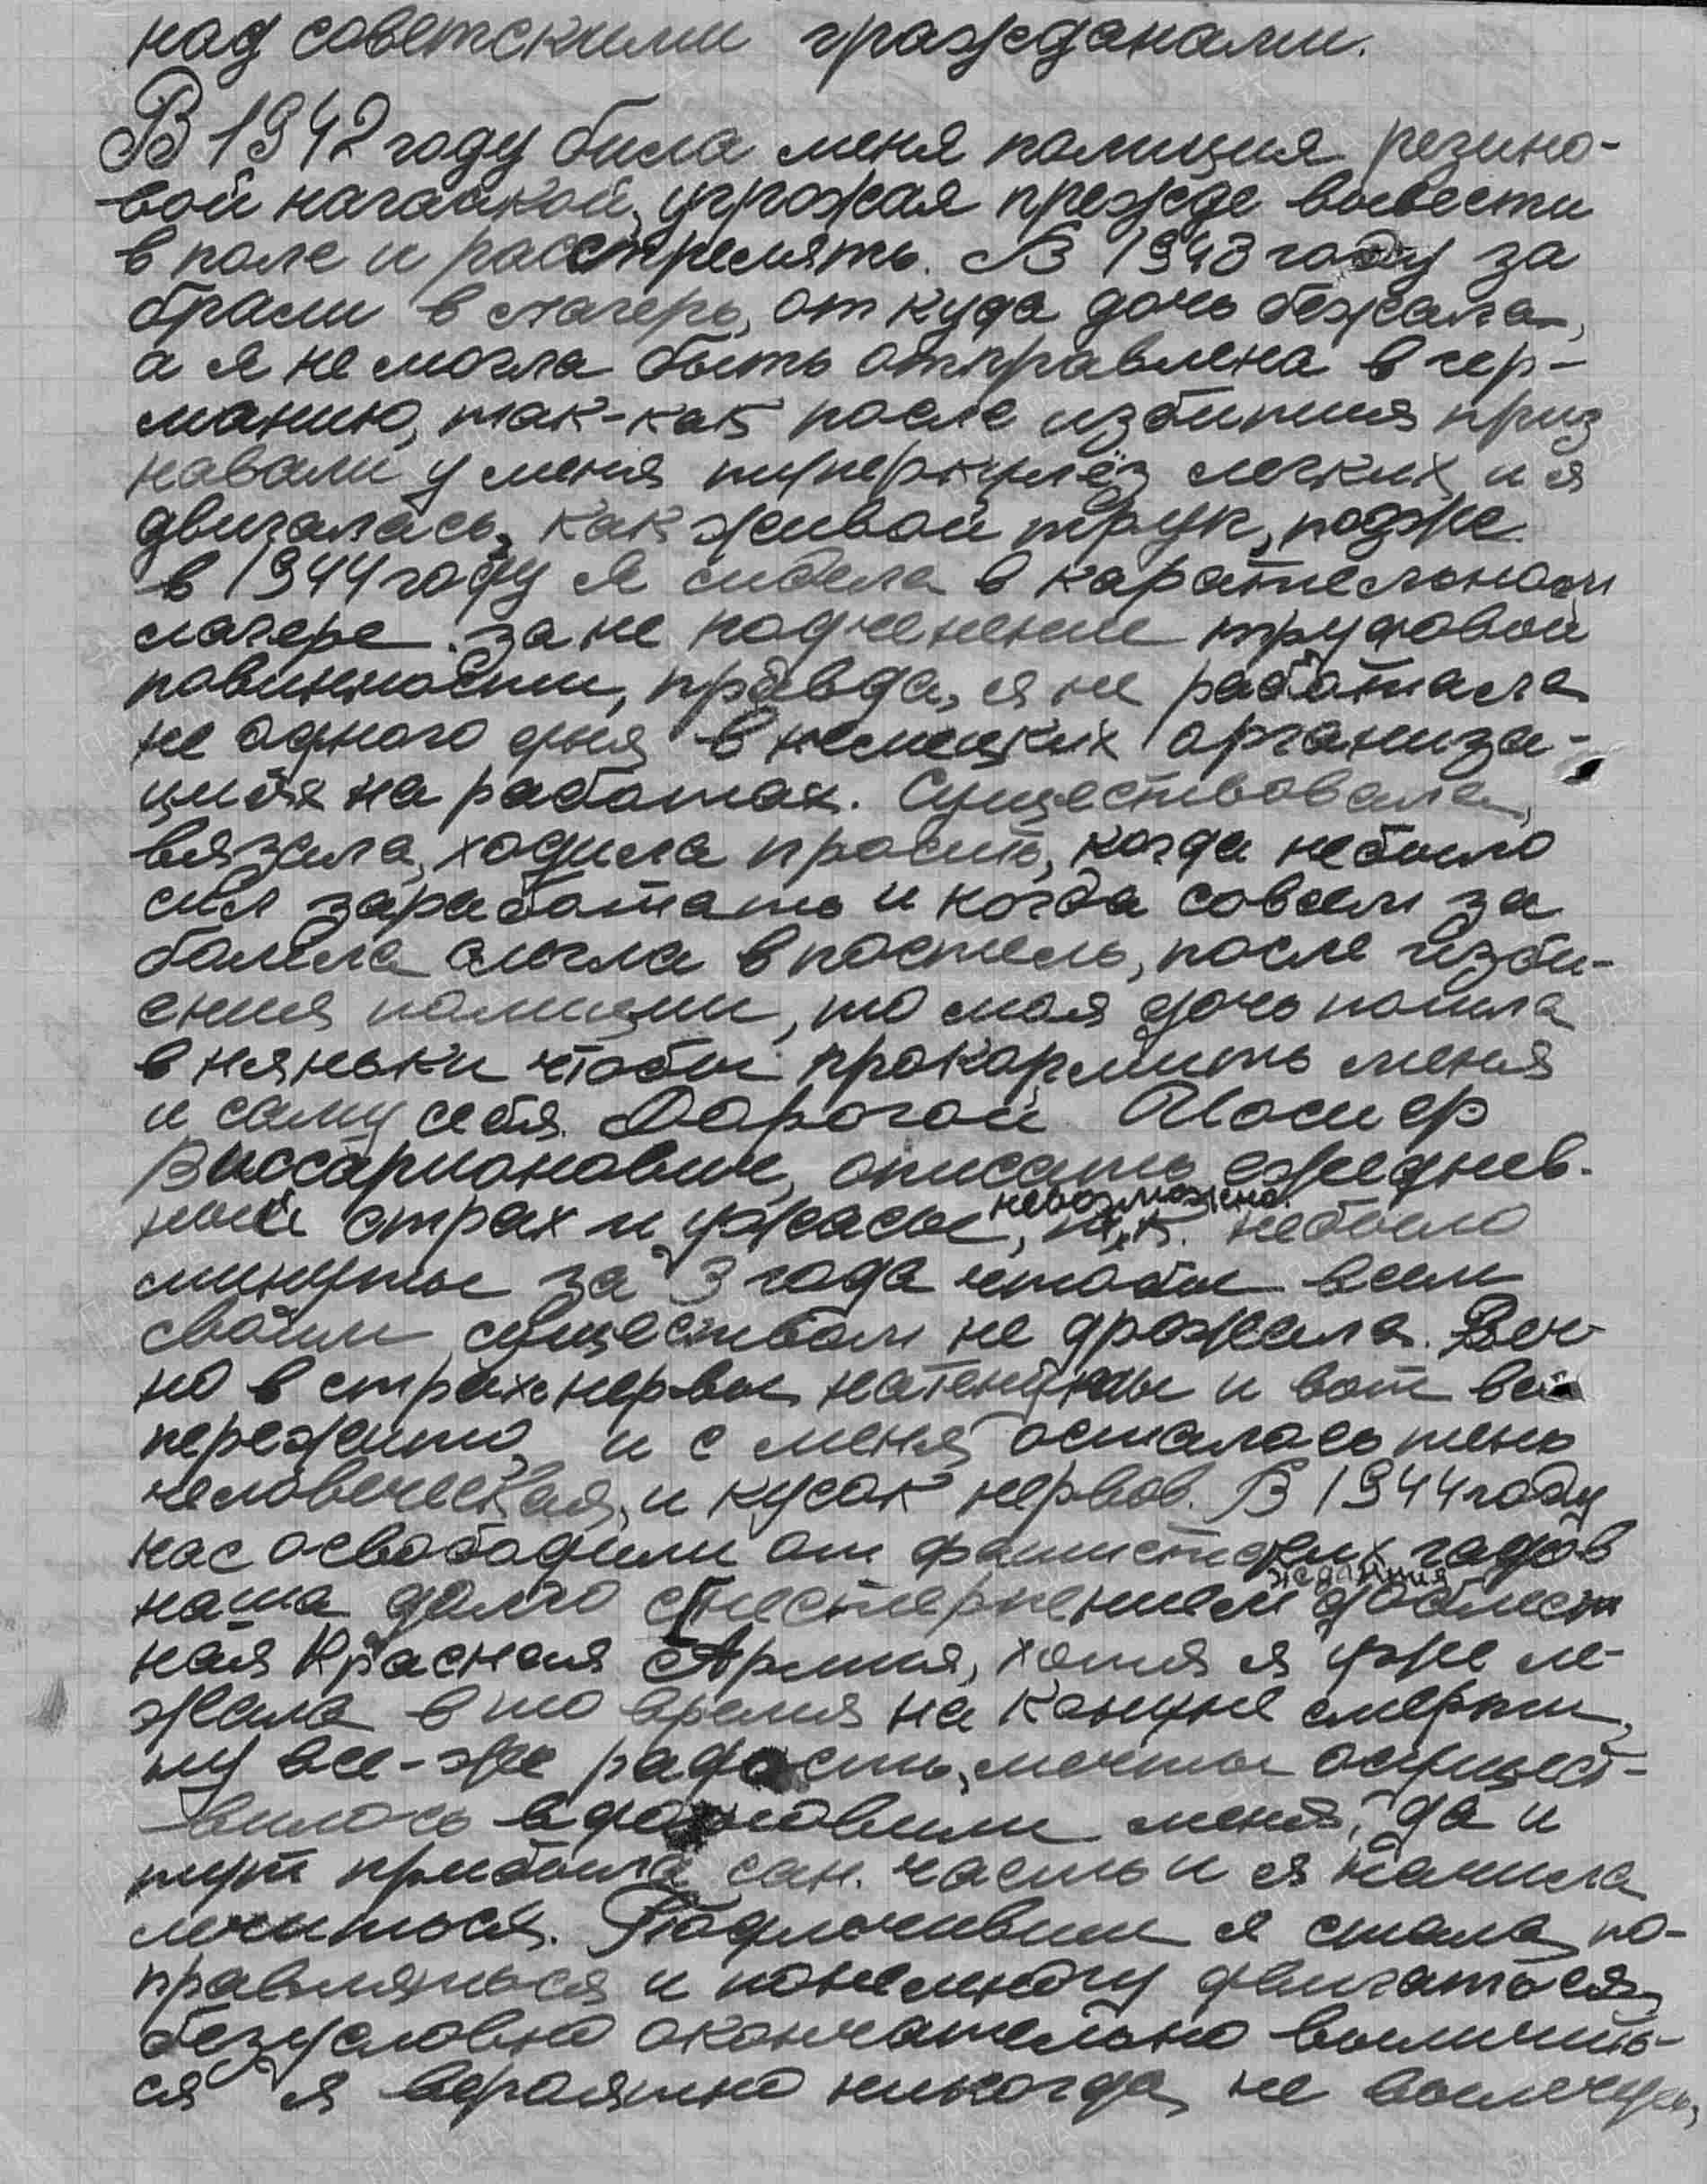 над советскими гражданами.
В 1942 году била меня полиция резино-
вой нагайкой, угрожая прежде вывести
в поле и расстрелять. В 1943 году за
брали в лагерь, от куда дочь бежала,
а я не могла быть отправлена в гер-
манию, так-как после избития приз
навали у меня туперкулёз легких и я
двигалась, как живой труп, подже
в 1944 году я сидела в карательном
лагере за не подченение трудовой
повинности, правда, я не работала
не одного дня в немецких организа-
циях на работах. Существовала,
вязала, ходила просить, когда небыло
сил заработать и когда совсем за
болела слегла в постель, после изби-
ения полиции, то моя дочь пошла
в няньки чтобы прокормить меня
и саму себя. Дорогой Иосиф
Виссарионович, описать ежеднев-
ный страх и ужасы невозможно, т.к. небыло
минуты за 3 года чтобы всем
своим существом не дрожала. Веч-
но в страхе нервы натенуты и вот все
пережито, и с меня осталась тень
человеческая, и кусок нервов. В 1944 году
нас освободили от фашистских гадов
наша долго с нестерпением жданная доблест
ная Красная Армия, хотя я уже ле-
жала в то время на концые смерти,
ну все-же радость, мечты осущест-
вилось вдохновили меня, да и
тут прибыла сан. часть и я начила
лечиться. Подлечивши я стала по-
правляться и понемногу двигаться,
безусловно окончательно вылечить-
ся я вероятно никогда не вылечусь,